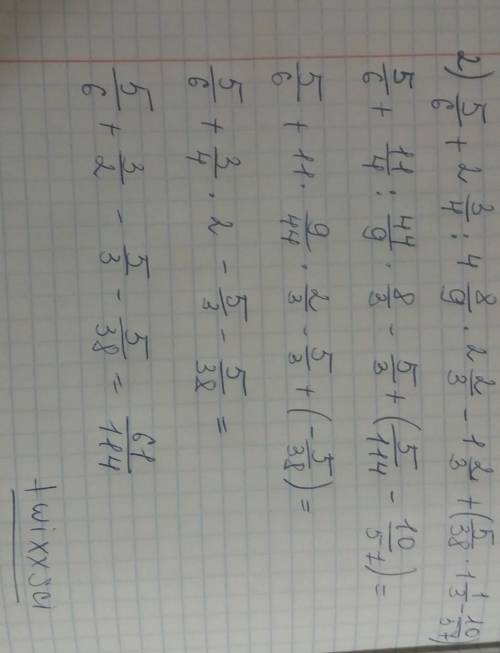 2) 5/6 + 2 3/4 : 4 8/9 · 2 2/3 - 1 2/3 + (5/38 · 1 1/3 - 10/57)
5/6 + 11/4 : 44/9 · 8/3 - 5/3 + (5/114 - 10/57) =
5/6 + 11 · 9/44 · 2/3 - 5/3 + (-5/38) =
5/6 + 3/4 · 2 - 5/3 - 5/38 =
5/6 + 3/2 - 5/3 - 5/38 = 61/114